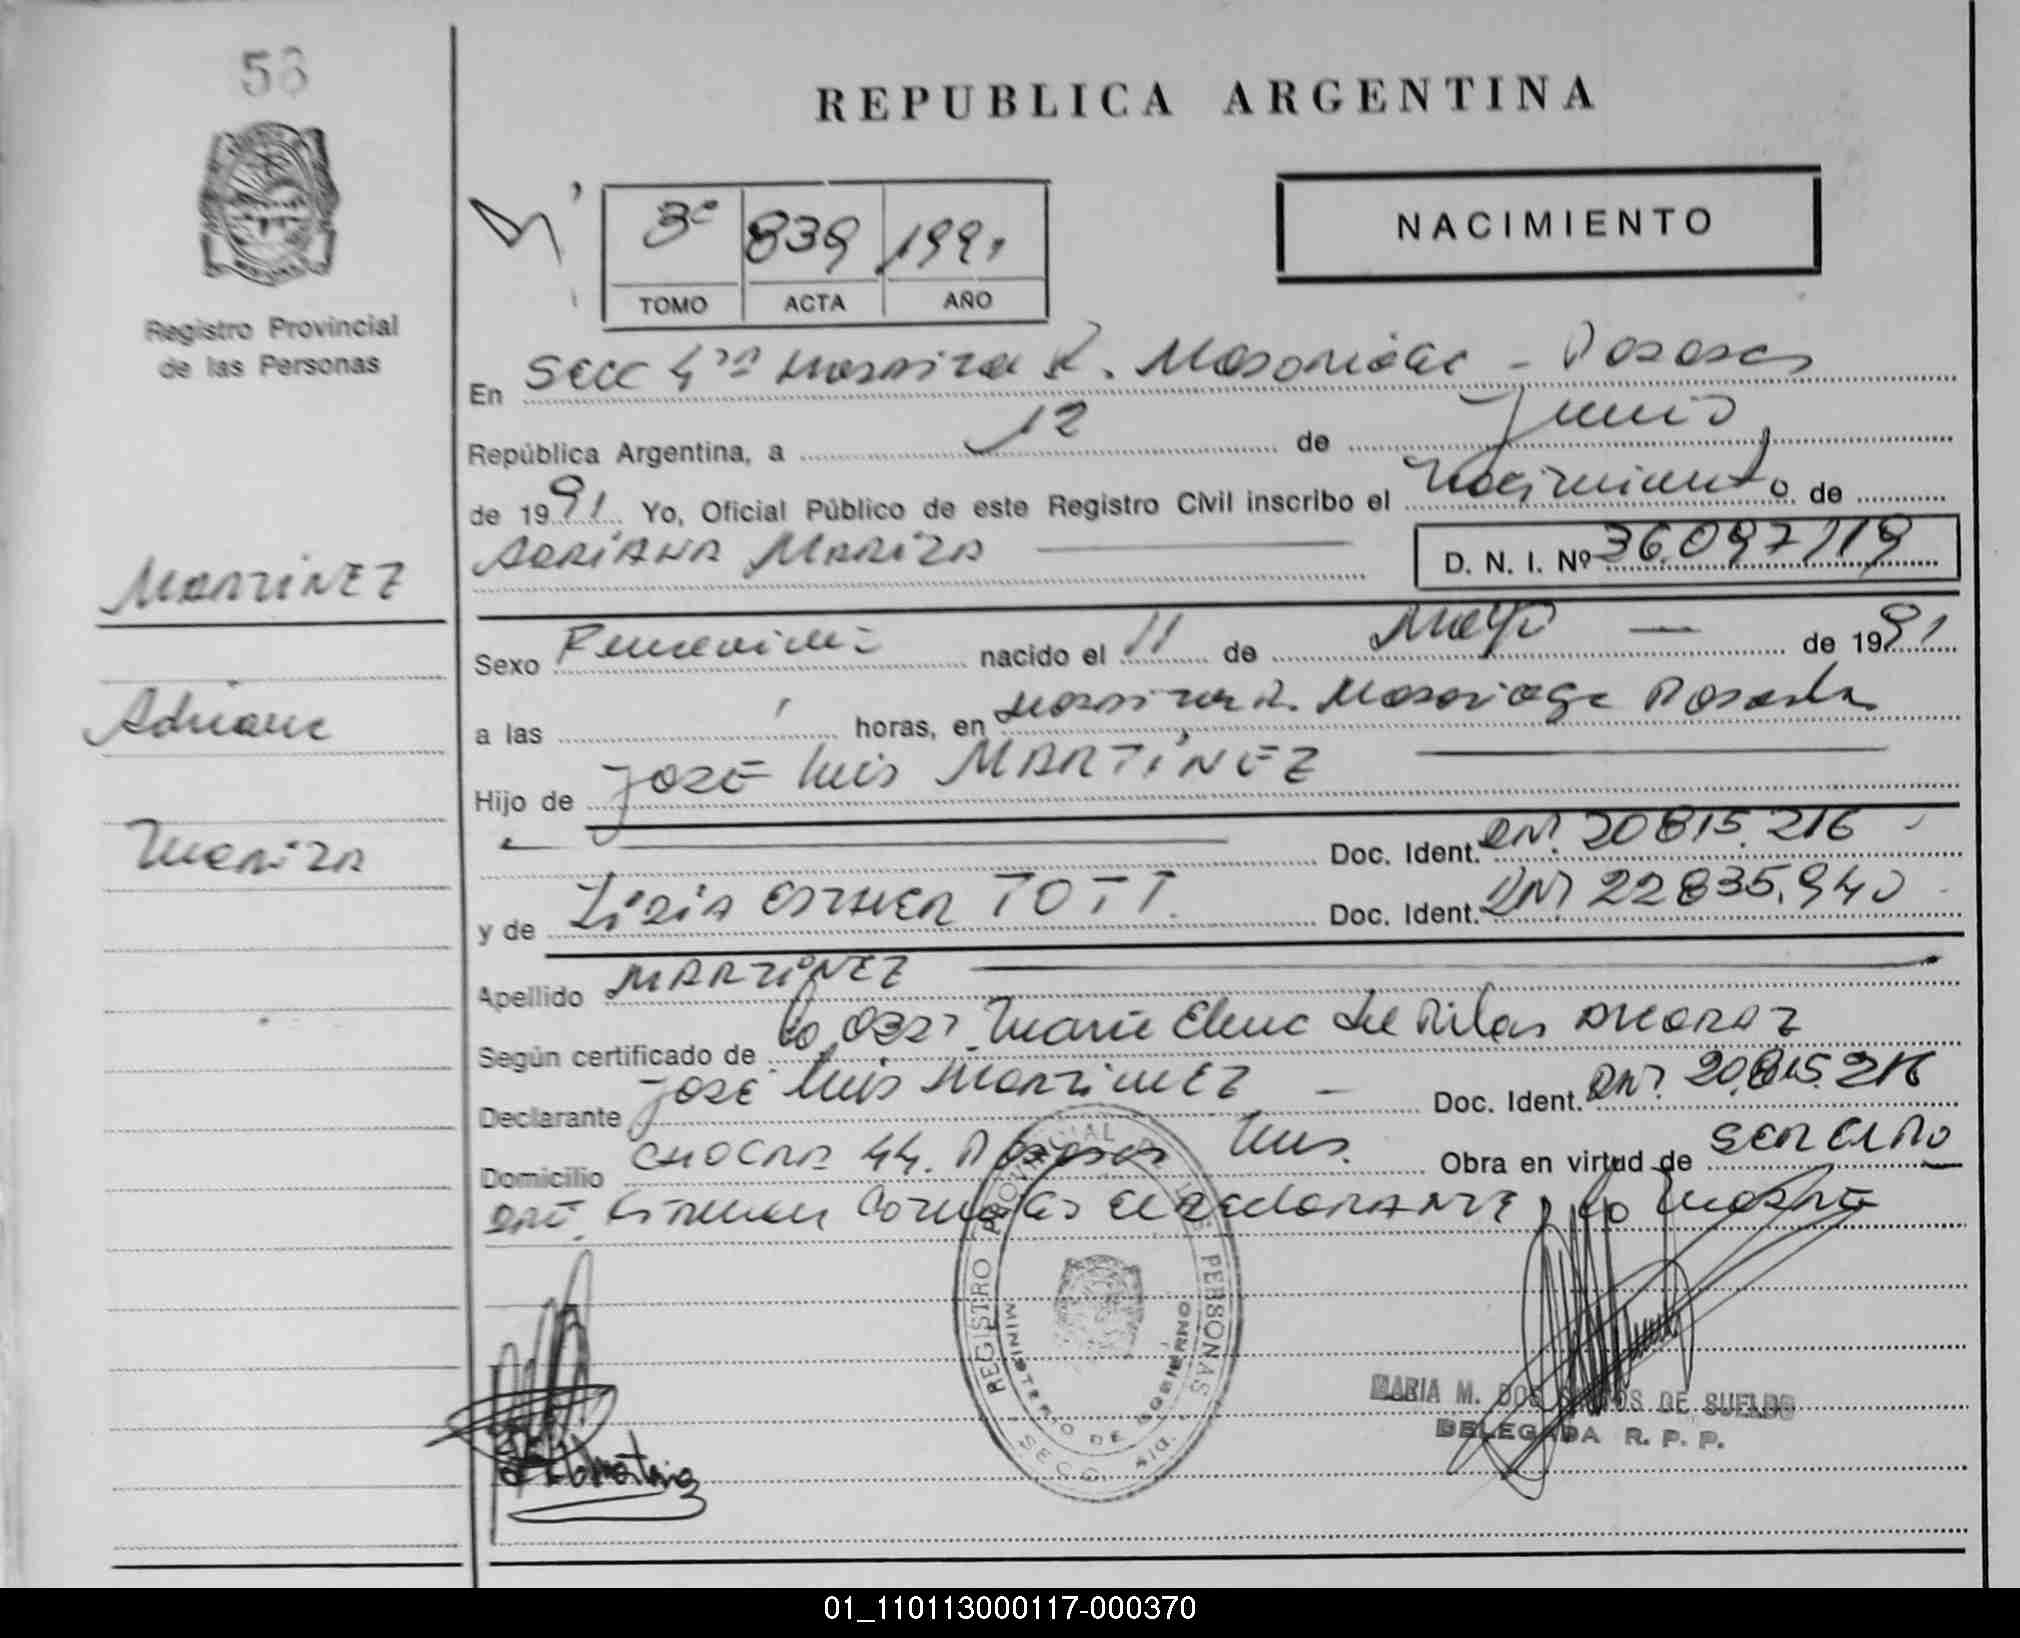 58
REPUBLICA ARGENTINA
3º 839 1991
TOMO ACTA AÑO
NACIMIENTO
Registro Provincial
de las Personas
En Secc 4ta R. Madariaga - Posadas
República Argentina, a 12 de Junio
de 1991 Yo, Oficial Público de este Registro Civil inscribo el Nacimiento de
ADRIANA MARIZA D. N. I. Nº 36.097.119
MARTINEZ
Adriana
Mariza
Sexo Femenino nacido el 11 de Mayo de 1991
a las horas, en R. Madariaga Posadas
Hijo de JOSE Luis MARTINEZ
Doc. Ident. DNI. 20815.216
y de ESTHER TOTT. Doc. Ident. DNI 22835.940
Apellido MARTINEZ
Según certificado de Maria Elena del Pilar
Declarante JOSE Luis MARTINEZ Doc. Ident. DNI. 20.815.216
Domicilio 44. Posadas Mns. Obra en virtud de SER EL PADRE
Firman el declarante y la madre
REGISTRO PROVINCIAL DE LAS PERSONAS
MINISTERIO DE GOBIERNO
MARIA M. DOS SANTOS DE SUELDO
DELEGADA R. P. P.
01_110113000117-000370